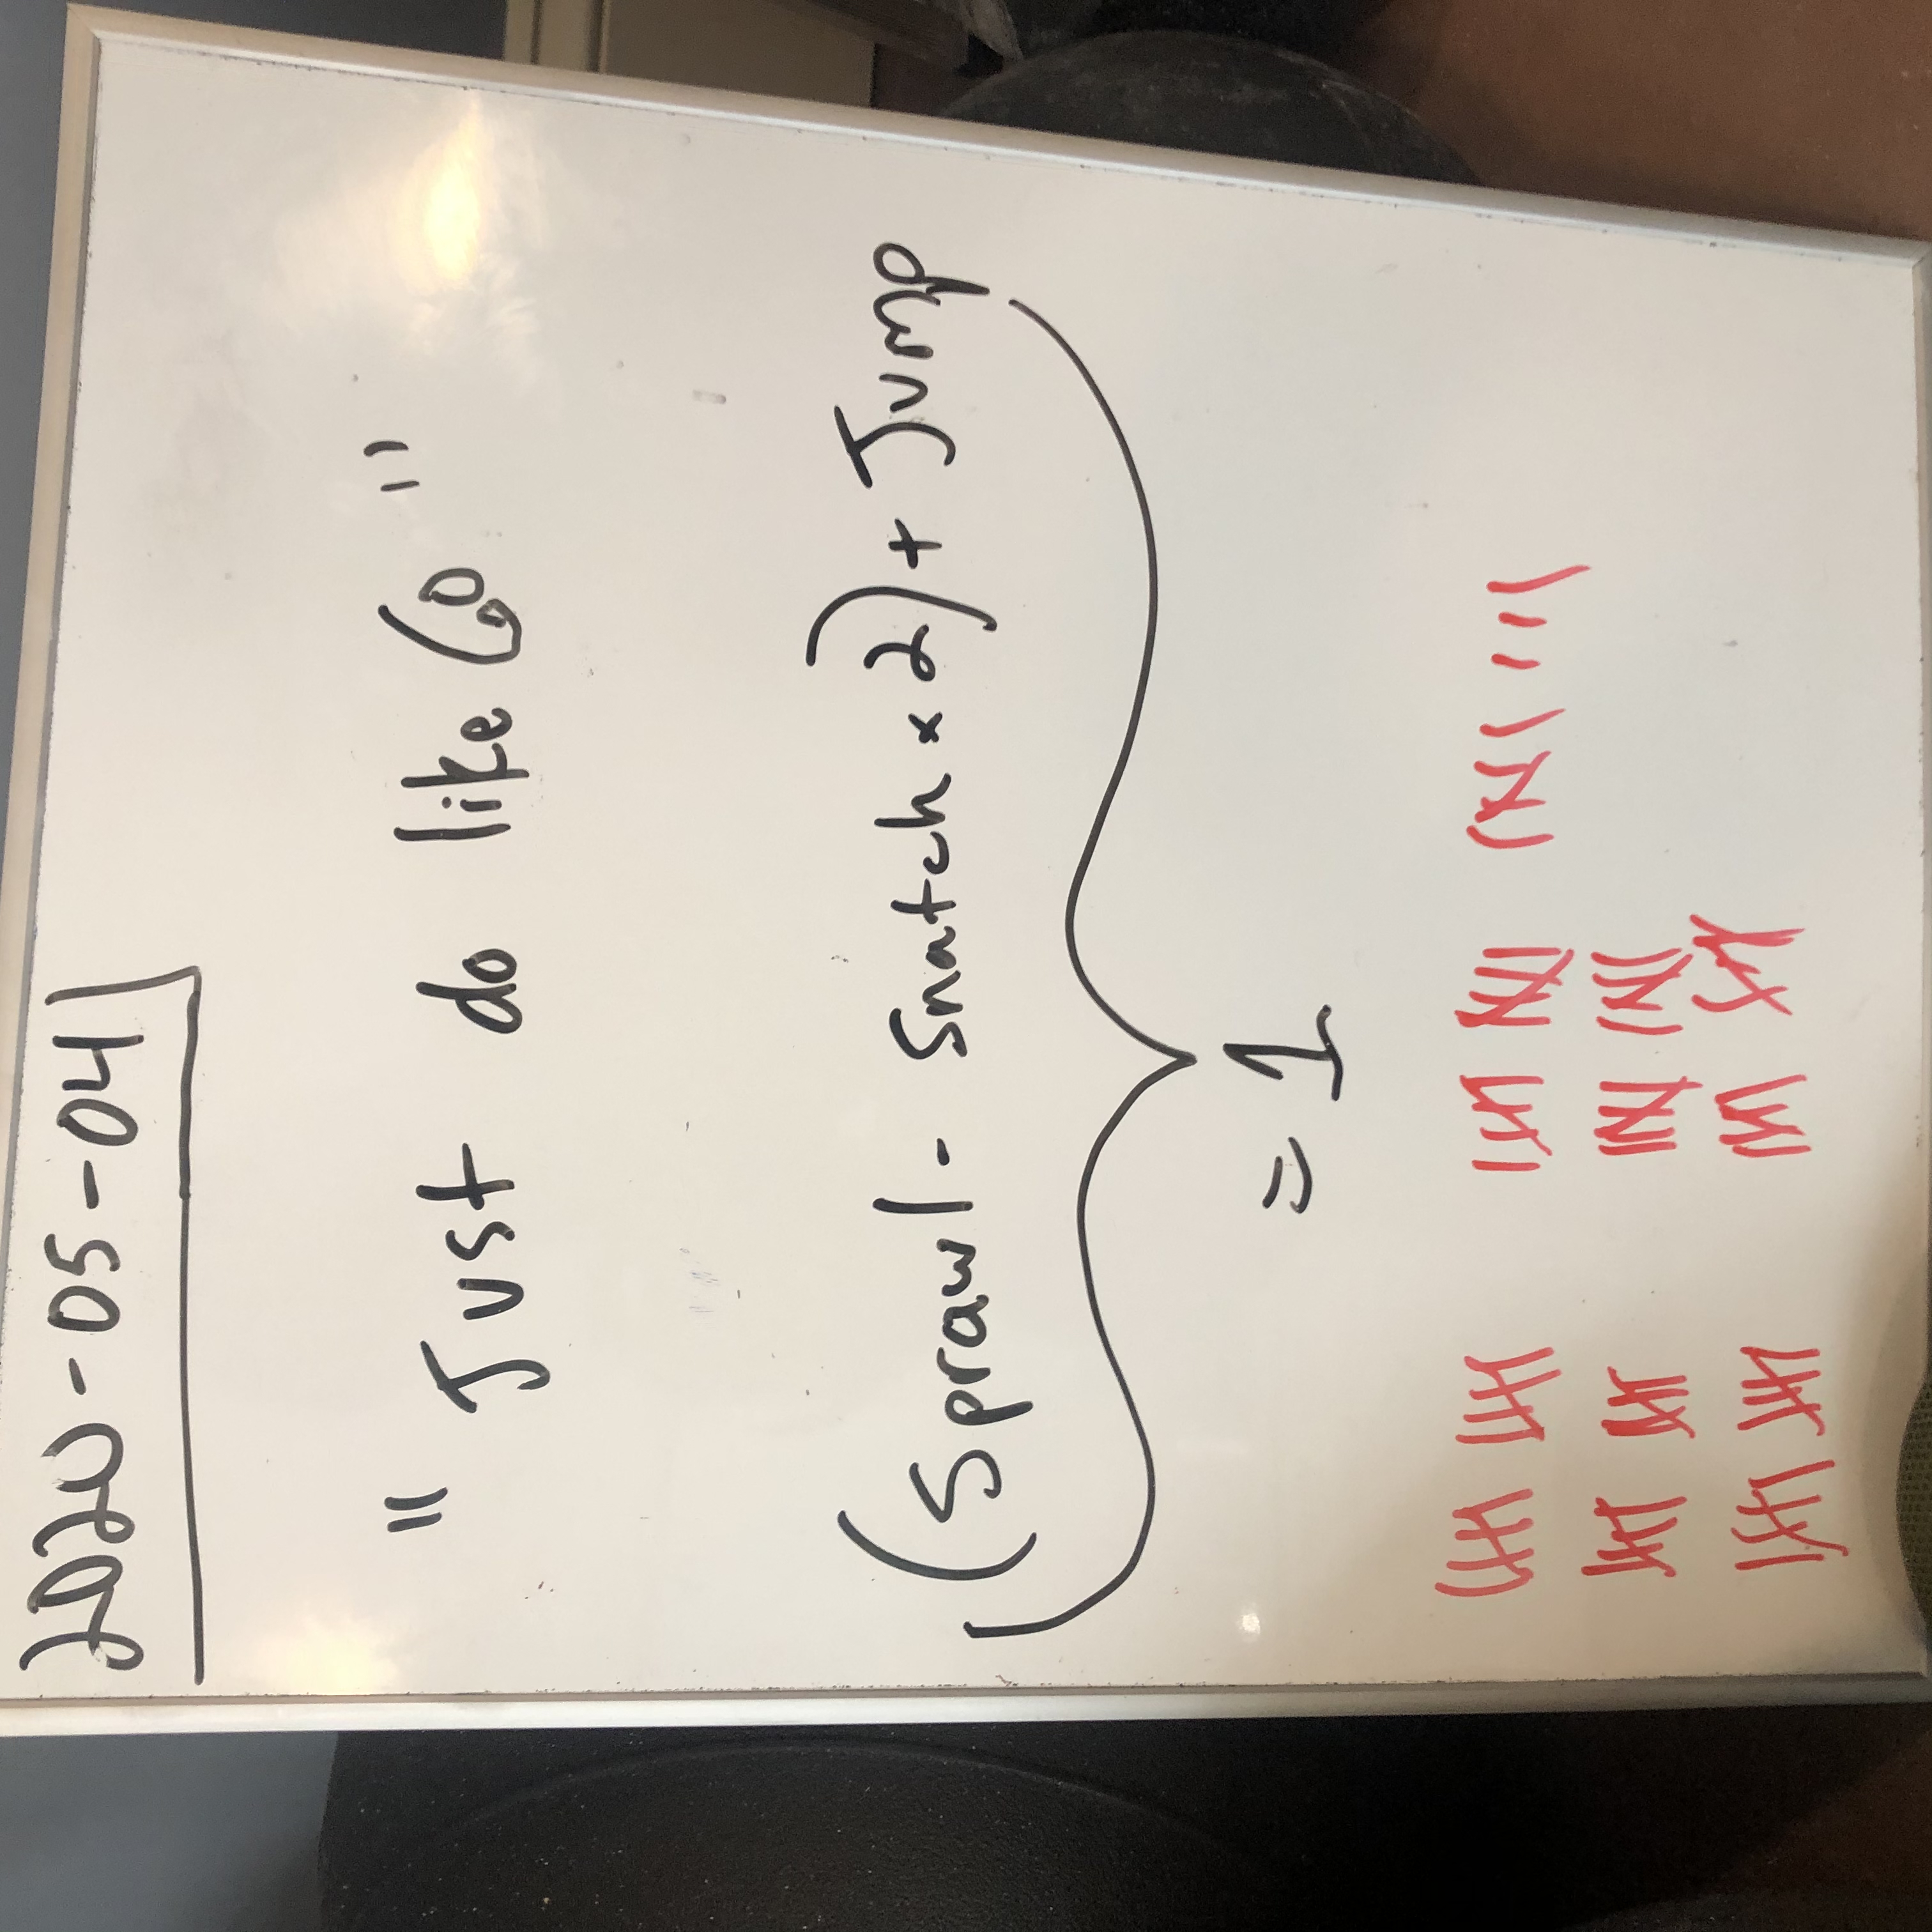 2020-05-04
"Just do like 60"
(Sprawl - Snatch x 2) + Jump
= 1